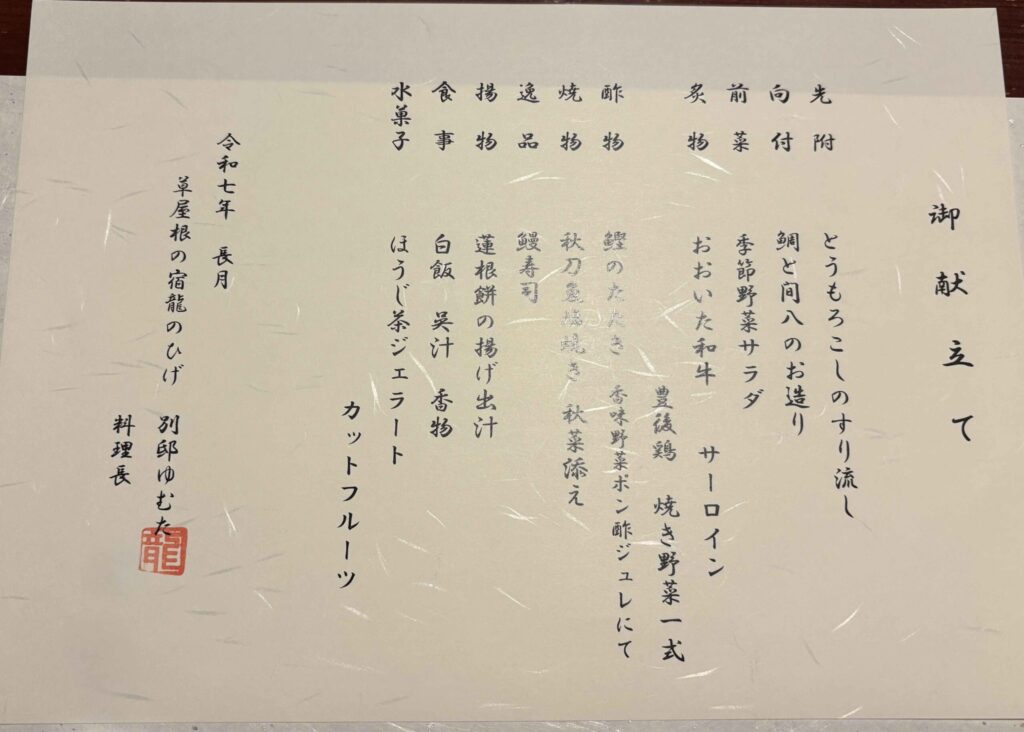 御献立て
先附　とうもろこしのすり流し
向付　鯛と間八のお造り
前菜　季節野菜サラダ
炙物　おおいた和牛　サーロイン
豊後鶏　焼き野菜一式
酢物　鰹のたたき　香味野菜ポン酢ジュレにて
焼物　秋刀魚塩焼き　秋菜添え
逸品　鰻寿司
揚物　蓮根餅の揚げ出汁
食事　白飯　呉汁　香物
水菓子　ほうじ茶ジェラート
カットフルーツ
令和七年　長月
草屋根の宿龍のひげ　別邸ゆむた
料理長
龍